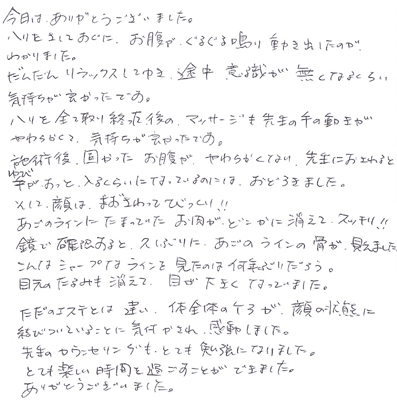 今日は、ありがとうございました。
ハリをしてあとに、お腹が、ぐるぐる鳴り動き出したのが、
わかりました。
だんだんリラックスしてゆき、途中意識が無くなるくらい
気持ちが良かったです。
ハリを全て取り終えた後の、マッサージも先生の手の動きが
やわらかくて、気持ちが良かったです。
施術後、固かったお腹が、やわらかくなり、先生におされると
ゆびが、すっと、入るくらいになっているのには、おどろきました。
そして、顔は、まださわってびっくり!!
あごのラインにたまっていたお肉が、どこかに消えて、スッキリ!!
鏡で確認すると、久しぶりに、あごのラインの骨が、見えました
こんなシャープなラインを見たのは何年ぶりだろう。
目元のたるみも消えて、目が大きくなっていました。
ただのエステとは違い、体全体のケアが、顔の状態に
結びついていることに気付かされ、感動しました。
先生のカウンセリングも、とても勉強になりました。
とても楽しい時間を過ごすことができました。
ありがとうございました。